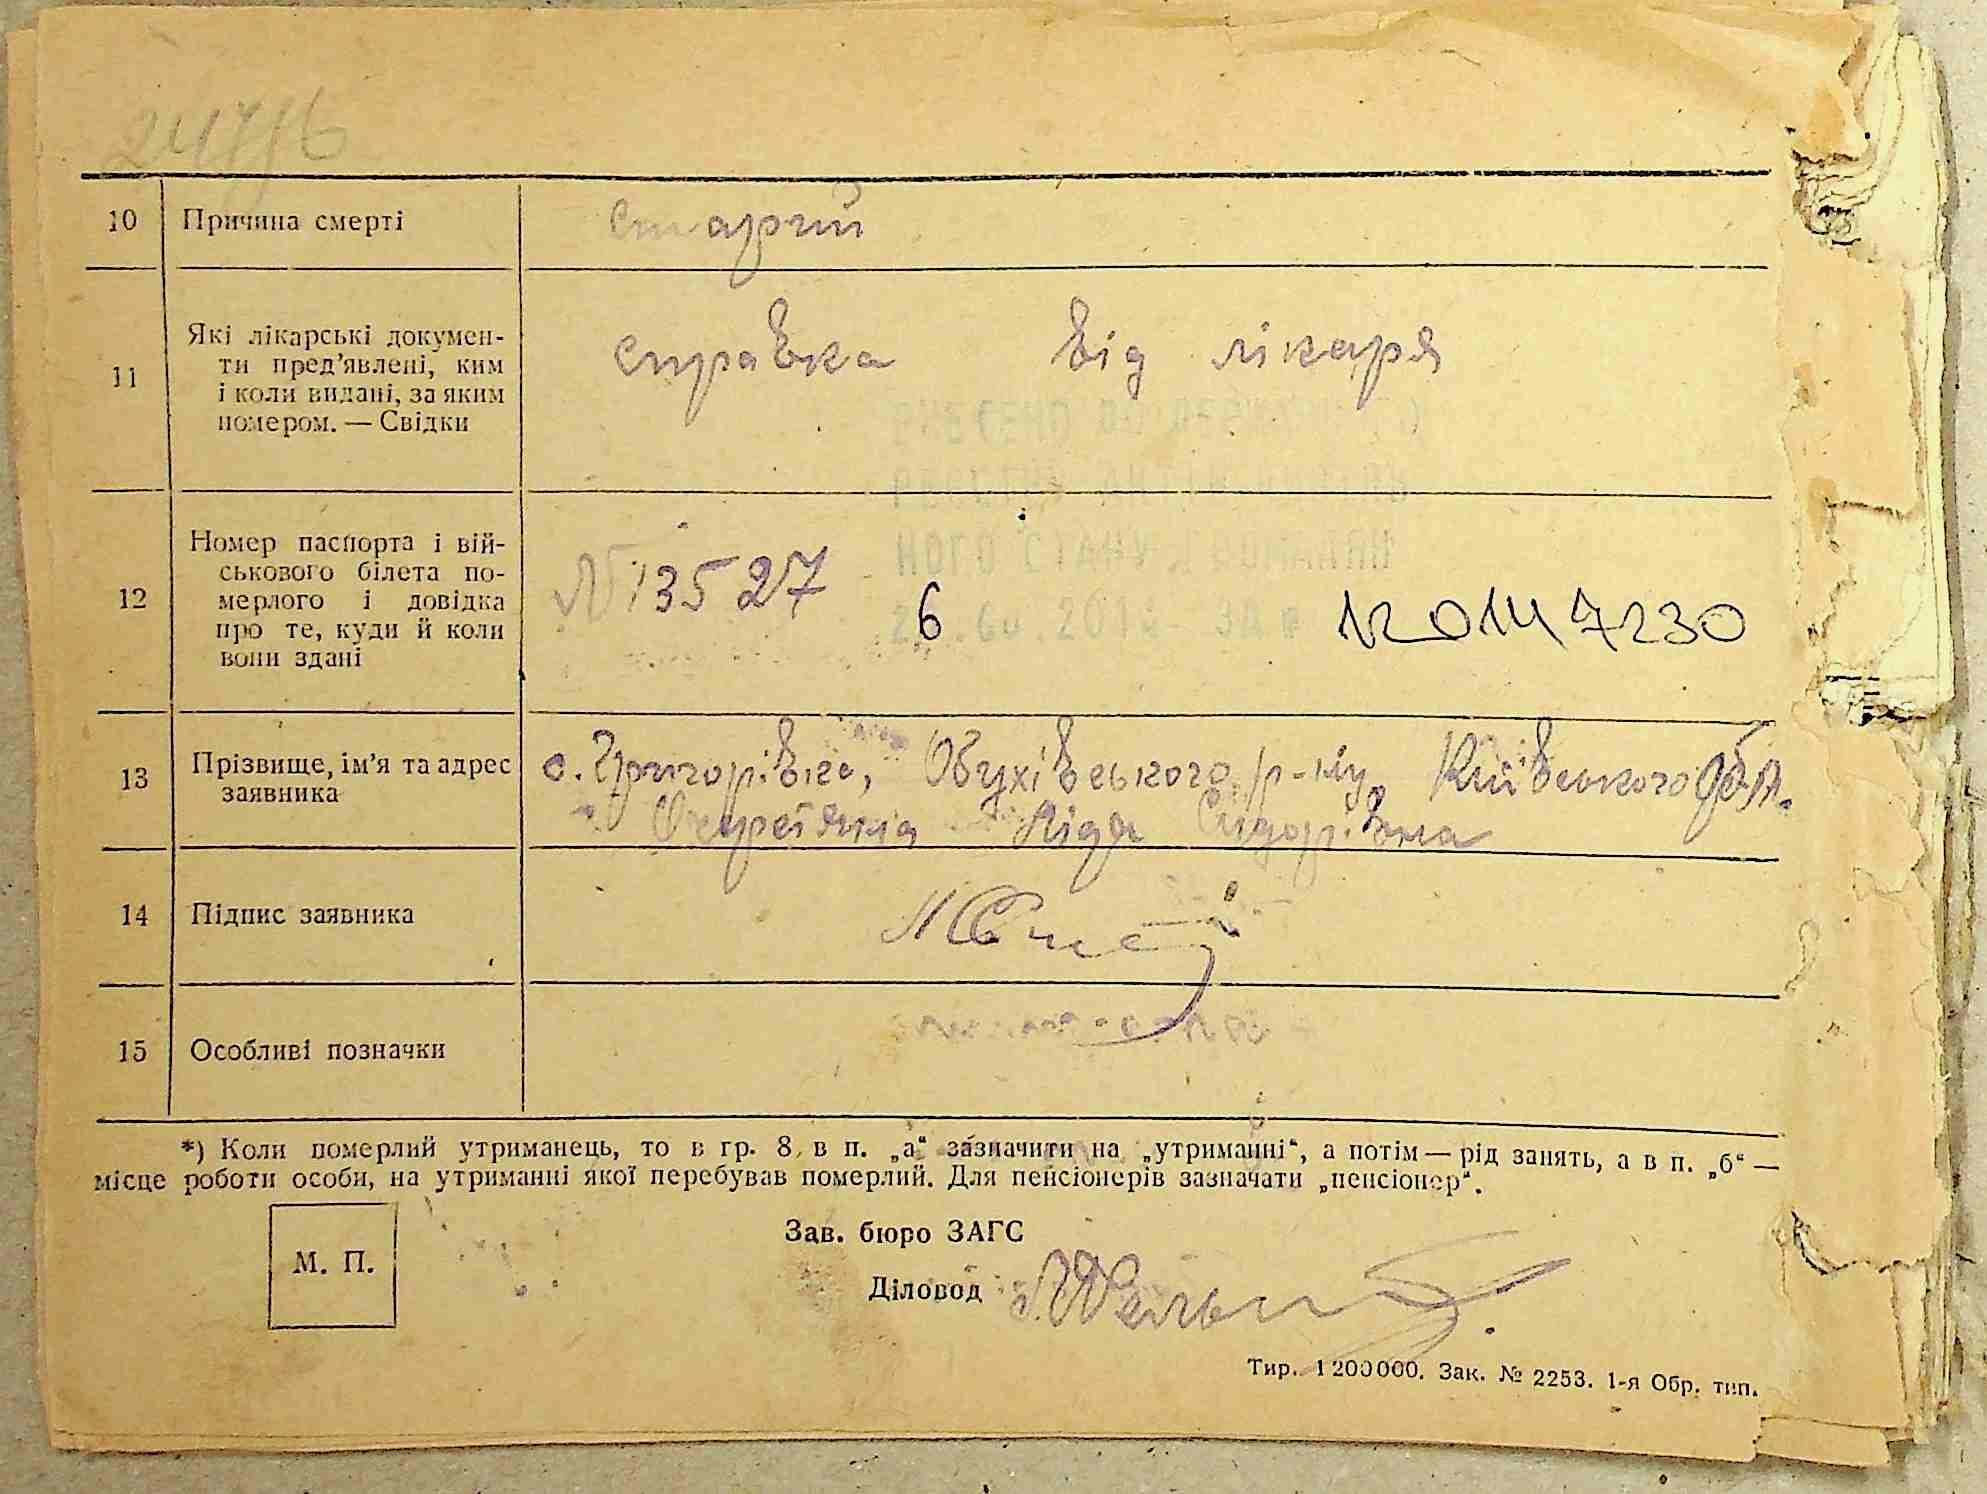 247/6
10 Причина смерті старий
11 Які лікарські докумен-
ти пред'явлені, ким
і коли видані, за яким
номером. — Свідки
справка від лікаря
12 Номер паспорта і вій-
ськового білета по-
мерлого і довідка
про те, куди й коли
вони здані
N 13527
6
12014 7230
НОГО СТАНУ
13 Прізвище, ім'я та адрес
заявника
с. Григорівка, Обухівського р-ну, Київського обл.
Ліда Сидорівна
14 Підпис заявника
15 Особливі позначки
*) Коли померлий утриманець, то в гр. 8, в п. „а“ зазначити на „утриманні“, а потім — рід занять, а в п. „б“ —
місце роботи особи, на утриманні якої перебував померлий. Для пенсіонерів зазначати „пенсіонер“.
Зав. бюро ЗАГС
М. П.
Діловод
Тир. 1 200 000. Зак. № 2253. 1-я Обр. тип.